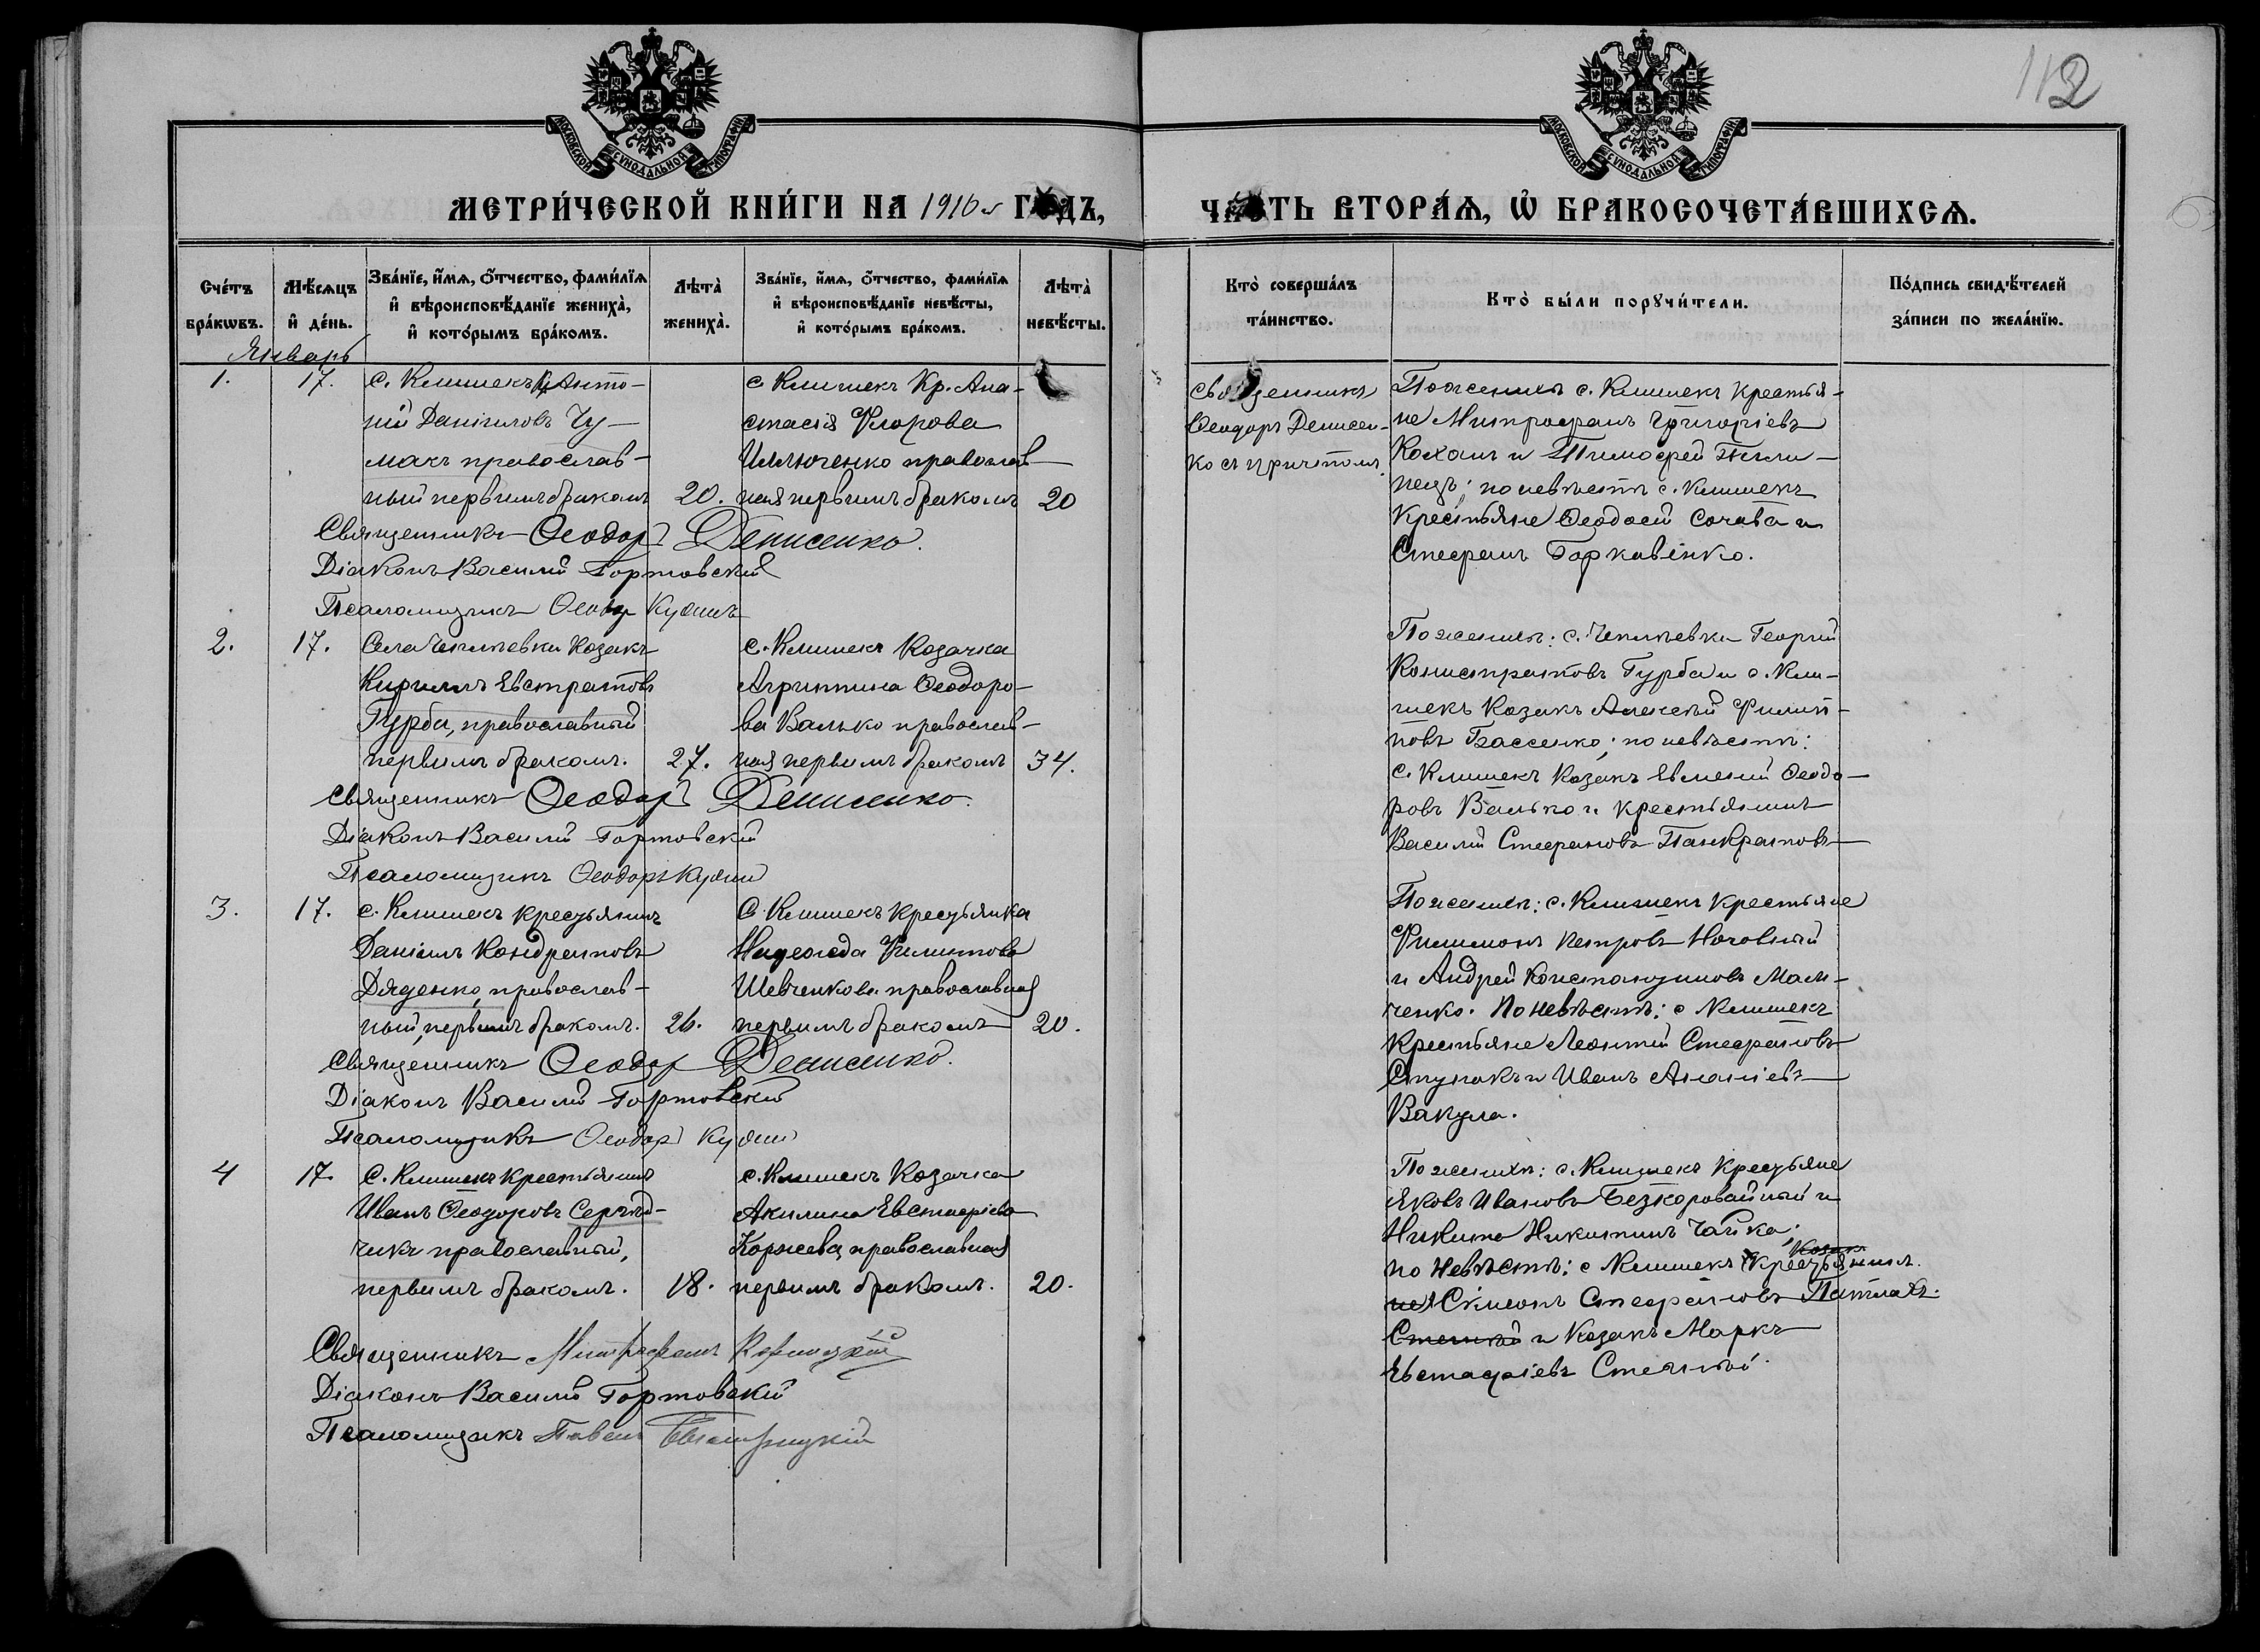 112
МОСКОВСКОЙ СѴНОДАЛЬНОЙ ТИПОГРАФІИ
МОСКОВСКОЙ СѴНОДАЛЬНОЙ ТИПОГРАФІИ
МЕТРИ́ЧЕСКОЙ КНИ́ГИ НА 1910 й ГОДЪ,
ЧА́СТЬ ВТОРА́Ѧ, Ѡ҆ БРАКОСОЧЕТА́ВШИХСѦ.
Сче́тъ бра́кѡвъ.
Мѣ́сѧцъ и҆ де́нь.
Зва́нїе, и҆́мѧ, ѻ҆́тчество, фами́лїѧ
и҆ вѣроисповѣ́данїе жениха̀,
и҆ кото́рымъ бра́комъ.
Лѣта̀ жениха̀.
Зва́нїе, и҆́мѧ, ѻ҆́тчество, фами́лїѧ
и҆ вѣроисповѣ́данїе невѣ́сты,
и҆ кото́рымъ бра́комъ.
Лѣта̀ невѣ́сты.
Кто̀ соверша́лъ та́инство.
Кто̀ бы́ли порꙋчи́тели.
По́дпись свидѣ́телей за́писи по жела́нїю.
Январь
1.
17.
с. Клишекъ Кр. Анто-
ній Даніиловъ Чу-
макъ православ-
ный первымъ бракомъ
20.
с. Клишекъ Кр. Ана-
стасія Флорова
православ-
ная первымъ бракомъ
20
Священникъ
Ѳеодоръ Денисен-
ко съ причтомъ.
По женихѣ с. Клишекъ крестья-
не Митрофанъ Григоріевъ
Коханъ и Тимофей
по невѣстѣ с. Клишекъ
крестьяне Ѳеодосій Сочава и
Стефанъ
Священникъ Ѳеодоръ Денисенко.
Діаконъ Василій Гортовский
Псаломщикъ Ѳеодоръ
2.
17.
Села Чепліевки Козакъ
Кириллъ Евстратовъ
Гурба, православный
первымъ бракомъ.
27.
с. Клишекъ Козачка
Агриппина Ѳеодоро-
ва Валько православ-
ная первымъ бракомъ
34.
По женихѣ: с. Чепліевки Георгій
Калистратовъ Гурба и с. Кли-
шекъ Козакъ Алексѣй Филип-
повъ Бассенко; по невѣстѣ:
с. Клишекъ Козакъ Евменій Ѳеодо-
ровъ Валько и крестьянинъ
Василій Стефановъ Панкратовъ
Священникъ Ѳеодоръ Денисенко.
Діаконъ Василій Гортовскій
Псаломщикъ Ѳеодоръ
3.
17.
с. Клишекъ крестьянинъ
Даніилъ Кондратовъ
Дяденко, православ-
ный, первымъ бракомъ.
26.
С. Клишекъ крестьянка
Надежда Филиппова
Шевченкова православная
первымъ бракомъ
20.
По женихѣ: с. Клишекъ крестьяне
Филимонъ Петровъ Ночовный
и Андрей Константиновъ Мам-
ченко. По невѣстѣ: с Клишекъ
крестьяне Леонтій Стефановъ
Ступакъ и Иванъ Ананіевъ
Вакула.
Священникъ Ѳеодоръ Денисенко.
Діаконъ Василій Гортовскій
Псаломщикъ Ѳеодоръ
4
17.
С. Клишекъ крестьянинъ
Иванъ Ѳеодоровъ Сергѣй-
чикъ православный,
первымъ бракомъ.
18.
с. Клишекъ Козачка
Акилина Евстафіева
Коржева православная
первымъ бракомъ.
20.
По женихѣ: с. Клишекъ Крестьяне
Яковъ Ивановъ Безкоровайный и
Никита Никитинъ Чайка;
Козакъ
по невѣстѣ: с Клишекъ крестьянинъ
Сімеонъ Стефановъ Патлахъ.
и Козакъ Маркъ
Евстафіевъ Стенной.
Священникъ Митрофанъ Корницкій
Діаконъ Василій Гортовскій
Псаломщикъ Павелъ